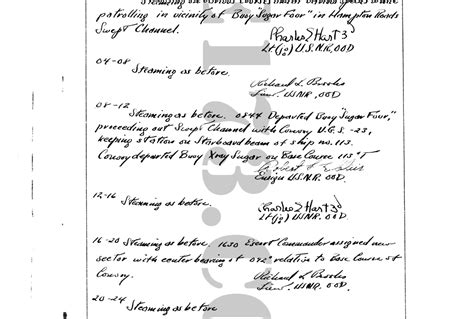 Steaming on various courses and various speeds while
patrolling in vicinity of Buoy "Sugar Four" in Hampton Roads
Swept Channel.
Charles Z Hart 3d
Lt(jg) U.S.N.R, OOD
04-08
Steaming as before.
Lieut. USNR, OOD.
08-12
Steaming as before. 0844 Departed Buoy "Sugar Four,"
proceeding out Swept Channel with Convoy U.G.S. -23,
keeping station on Starboard beam of ship no. 113.
Convoy departed Buoy Xray Sugar on Base Course 113°T
Ensign U.S.N.R. OOD.
12-16
Steaming as before.
Charles Z Hart 3d
Lt(jg) USNR, OOD
16-20 Steaming as before. 1630 Escort Commander assigned new
sector with center bearing of 072° relative to Base Course of
Convoy.
Lieut. USNR, OOD.
20-24
Steaming as before